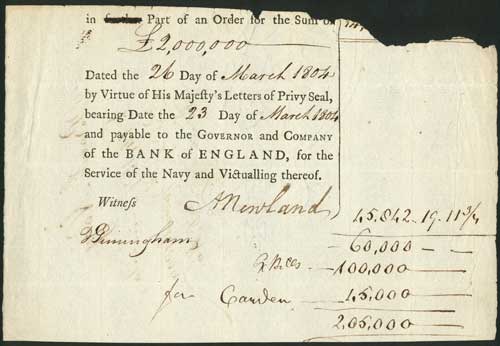 in further Part of an Order for the Sum of
£2,000,000
Dated the 26 Day of March 1804
by Virtue of His Majeſty's Letters of Privy Seal,
bearing Date the 23 Day of March 1804
and payable to the GOVERNOR and COMPANY
of the BANK of ENGLAND, for the
Service of the Navy and Victualling thereof.
Witneſs ANewland
45.842 - 19. 11 3/4
60,000
100,000
for 45,000
205,000